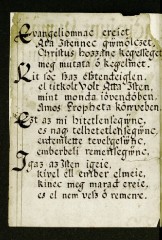 Evangeliomnac ereiet
Ada Istennec gwmölczet,
Christus hozzanc kegesseget
meg mutata ö kegelmet.
Kit soc haz esztendeiglen,
el titkolt volt Ada Isten,
mint monda iövendöben,
Amos Propheta könveben.
Ezt az mi hitetlensegwnc,
es nagi telhetetlensegwnc,
erdemlette tevelgesswnc,
emberbeli remensegwnc.
Igaz az Isten igeie,
kivel ell ember elmeie,
kinec meg marad ereie,
es el nem vesz ö remenie.